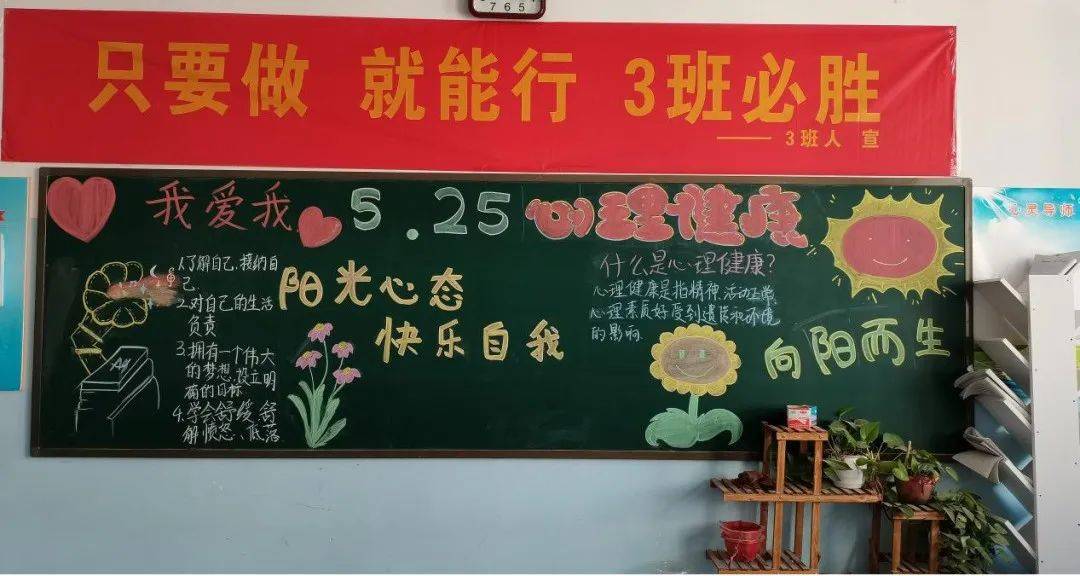 7 6 5
只要做 就能行 3班必胜
—— 3班人 宣
我爱我
5.25 心理健康
1.了解自己、接纳自
己.
2.对自己的生活
负责
3.拥有一个伟大
的梦想,设立明
确的目标
4.学会舒缓、舒
解愤怒、低落
阳光心态
快乐自我
什么是心理健康?
心理健康是指精神、活动正常、
心理素质好受到遗传和环境
的影响.
向阳而生
心灵导师